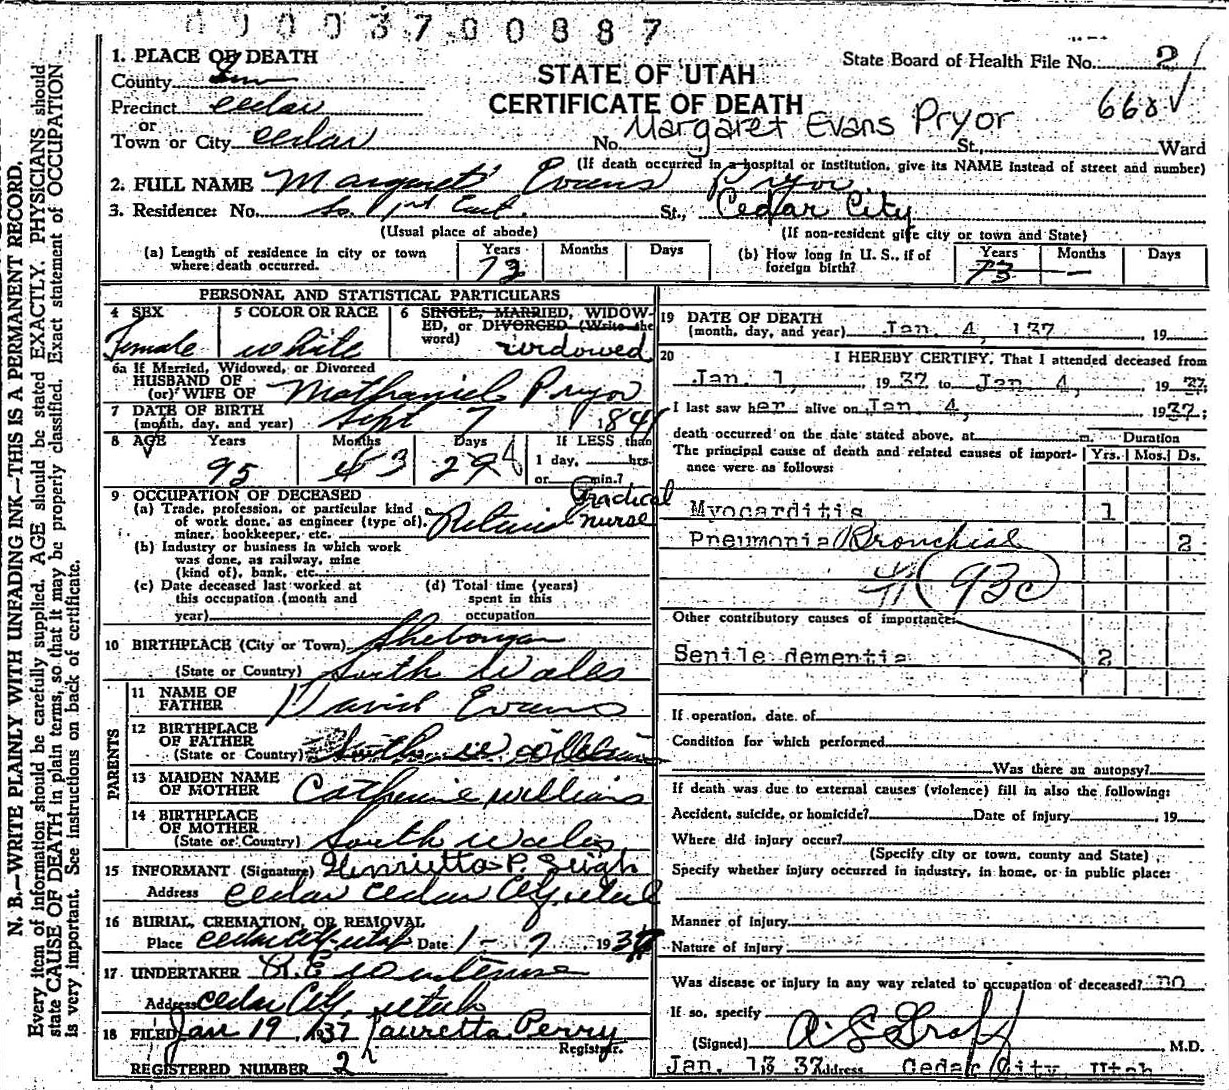 0 0 0 3 7 0 0 8 8 7
N. B.—WRITE PLAINLY WITH UNFADING INK—THIS IS A PERMANENT RECORD.
Every item of information should be carefully supplied. AGE should be stated EXACTLY. PHYSICIANS should
state CAUSE OF DEATH in plain terms, so that it may be properly classified. Exact statement of OCCUPATION
is very important. See instructions on back of certificate.
STATE OF UTAH
CERTIFICATE OF DEATH
State Board of Health File No. 2
668
1. PLACE OF DEATH
County
Precinct Cedar
or
Town or City Cedar No. Margaret Evans Pryor St., Ward
(If death occurred in a hospital or institution, give its NAME instead of street and number)
2. FULL NAME Margaret Evans Pryor
3. Residence: No. So. 1st East. St., Cedar City
(Usual place of abode) (If non-resident give city or town and State)
(a) Length of residence in city or town where death occurred. Years 73 Months Days
(b) How long in U. S., if of foreign birth? Years 73 Months Days
PERSONAL AND STATISTICAL PARTICULARS
4 SEX Female
5 COLOR OR RACE white
6 SINGLE, MARRIED, WIDOWED, or DIVORCED (Write the word) widowed
6a If Married, Widowed, or Divorced
HUSBAND OF
(or) WIFE OF Nathaniel Pryor
7 DATE OF BIRTH
(month, day, and year) Sept 7 1841
8 AGE Years 95 Months 3 Days 29 If LESS than 1 day, hrs. or min.?
9 OCCUPATION OF DECEASED
(a) Trade, profession, or particular kind
of work done, as engineer (type of),
miner, bookkeeper, etc. Retired Practical nurse
(b) Industry or business in which work
was done, as railway, mine
(kind of), bank, etc.
(c) Date deceased last worked at
this occupation (month and
year)
(d) Total time (years)
spent in this
occupation
10 BIRTHPLACE (City or Town)
(State or Country) South Wales
PARENTS
11 NAME OF
FATHER David Evans
12 BIRTHPLACE
OF FATHER
(State or Country) South
13 MAIDEN NAME
OF MOTHER Catherine Williams
14 BIRTHPLACE
OF MOTHER
(State or Country) South Wales
15 INFORMANT (Signature) Henrietta P. Leigh
Address Cedar Cedar City, Utah
16 BURIAL, CREMATION, OR REMOVAL
Place Cedar City Utah Date 1-7 1937
17 UNDERTAKER
Address Cedar City, Utah
18 FILED Jan 19 1937 Lauretta Perry
Registrar.
REGISTERED NUMBER 2
19 DATE OF DEATH
(month, day, and year) Jan. 4, 137 19
20 I HEREBY CERTIFY, That I attended deceased from
Jan. 1, 1937 to Jan 4, 1937;
I last saw her alive on Jan. 4, 1937;
death occurred on the date stated above, at m.
The principal cause of death and related causes of importance were as follows:
Duration
Yrs. Mos. Ds.
Myocarditis 1
Pneumonia Bronchial 2
93c
Other contributory causes of importance:
Senile dementia 2
If operation, date of
Condition for which performed
Was there an autopsy?
If death was due to external causes (violence) fill in also the following:
Accident, suicide, or homicide? Date of injury 19
Where did injury occur?
(Specify city or town, county and State)
Specify whether injury occurred in industry, in home, or in public place:
Manner of injury
Nature of injury
Was disease or injury in any way related to occupation of deceased? no
If so, specify
(Signed) A S Graff M.D.
Jan. 13 37 Address Cedar City, Utah